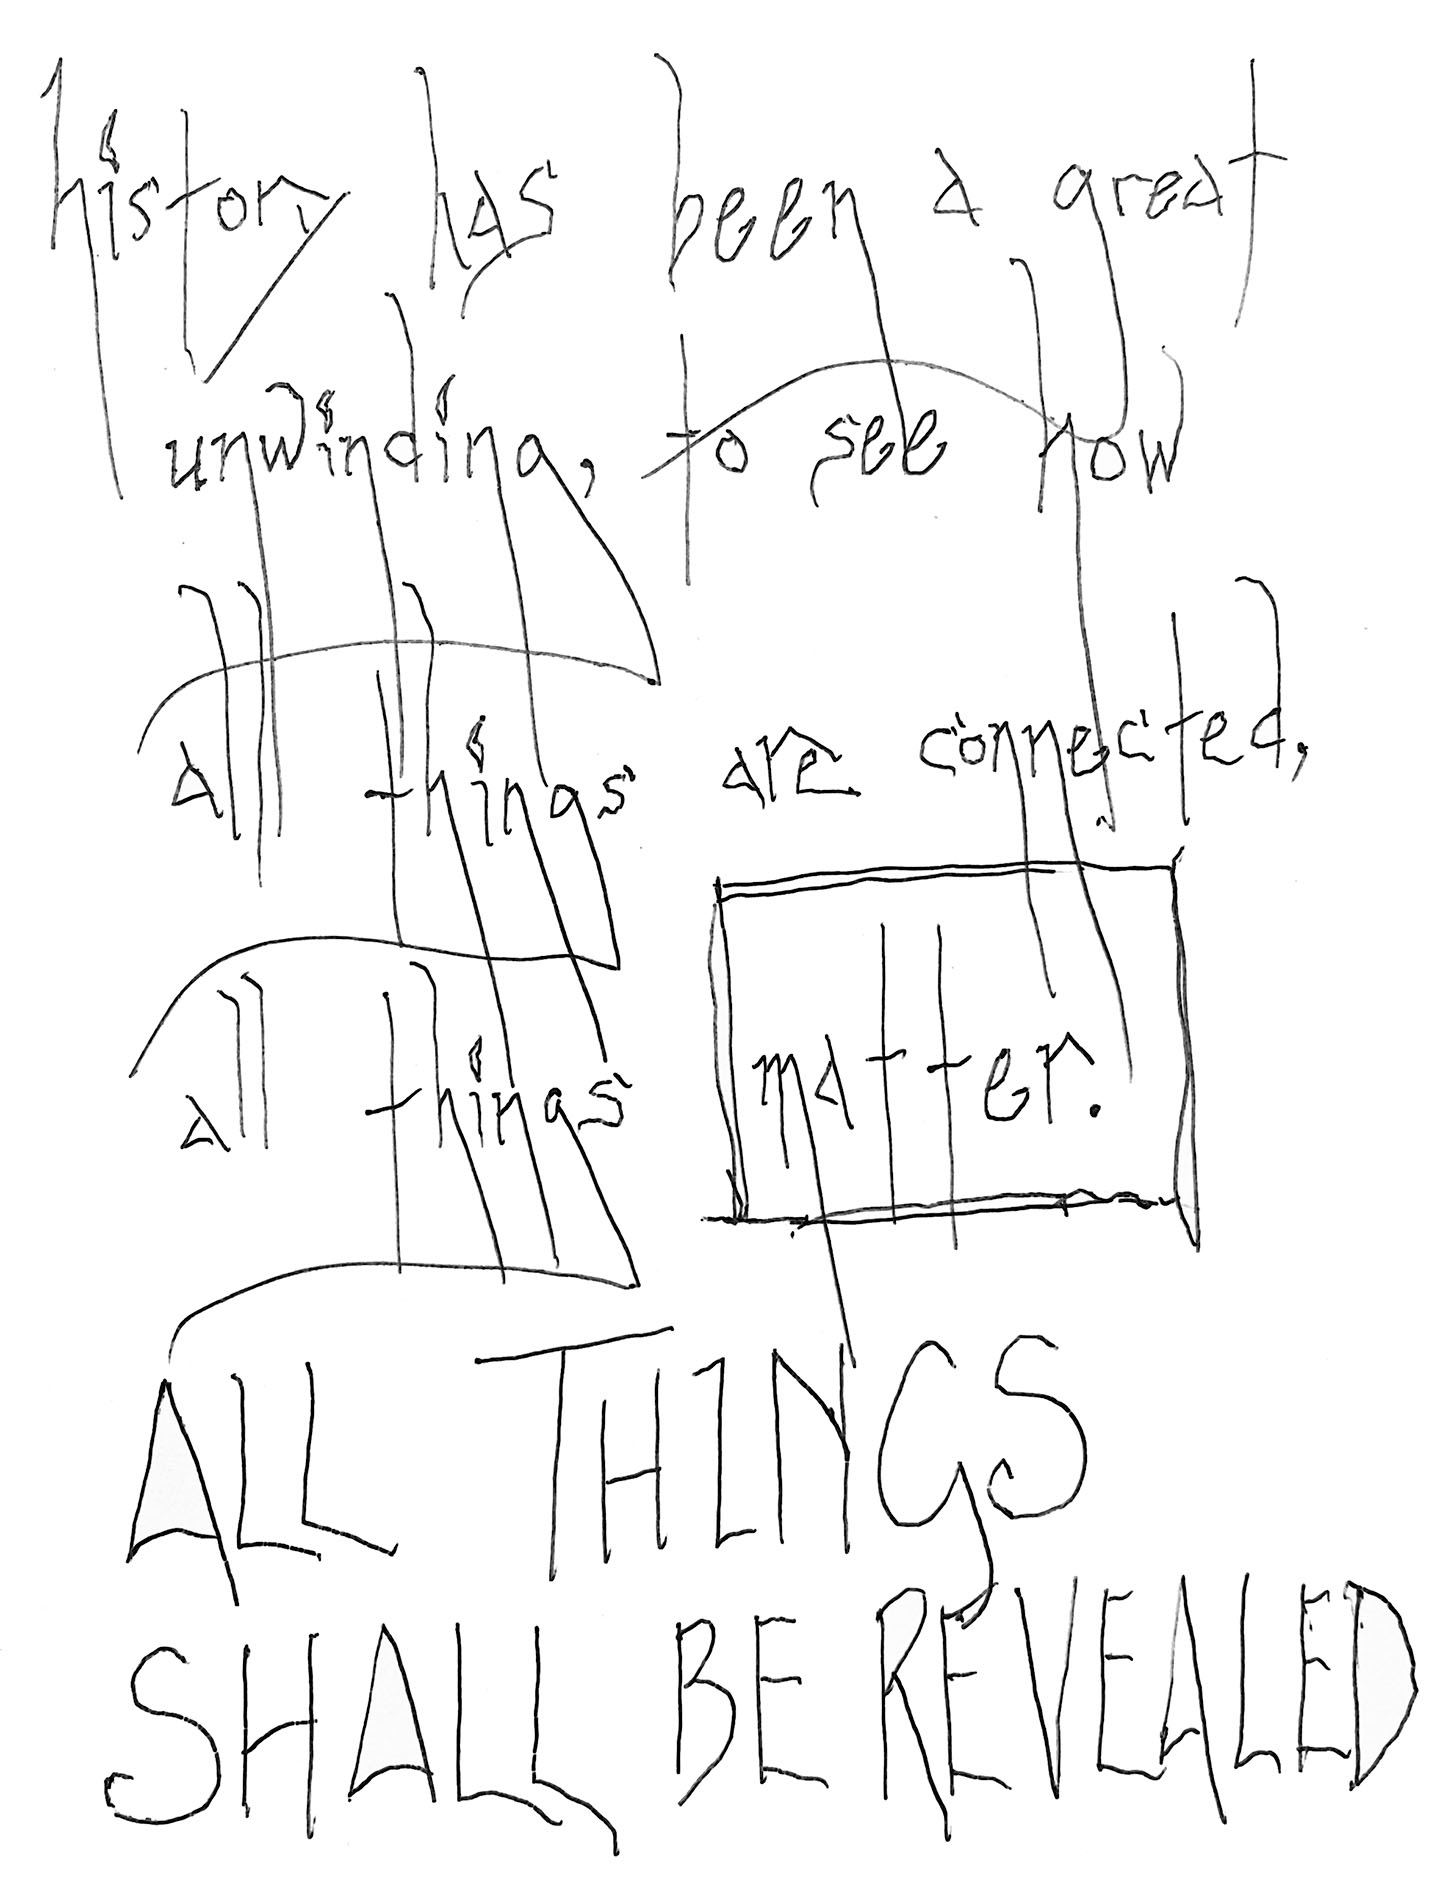 history has been a great
unwinding, to see how
all things are connected,
all things matter.
ALL THINGS
SHALL BE REVEALED